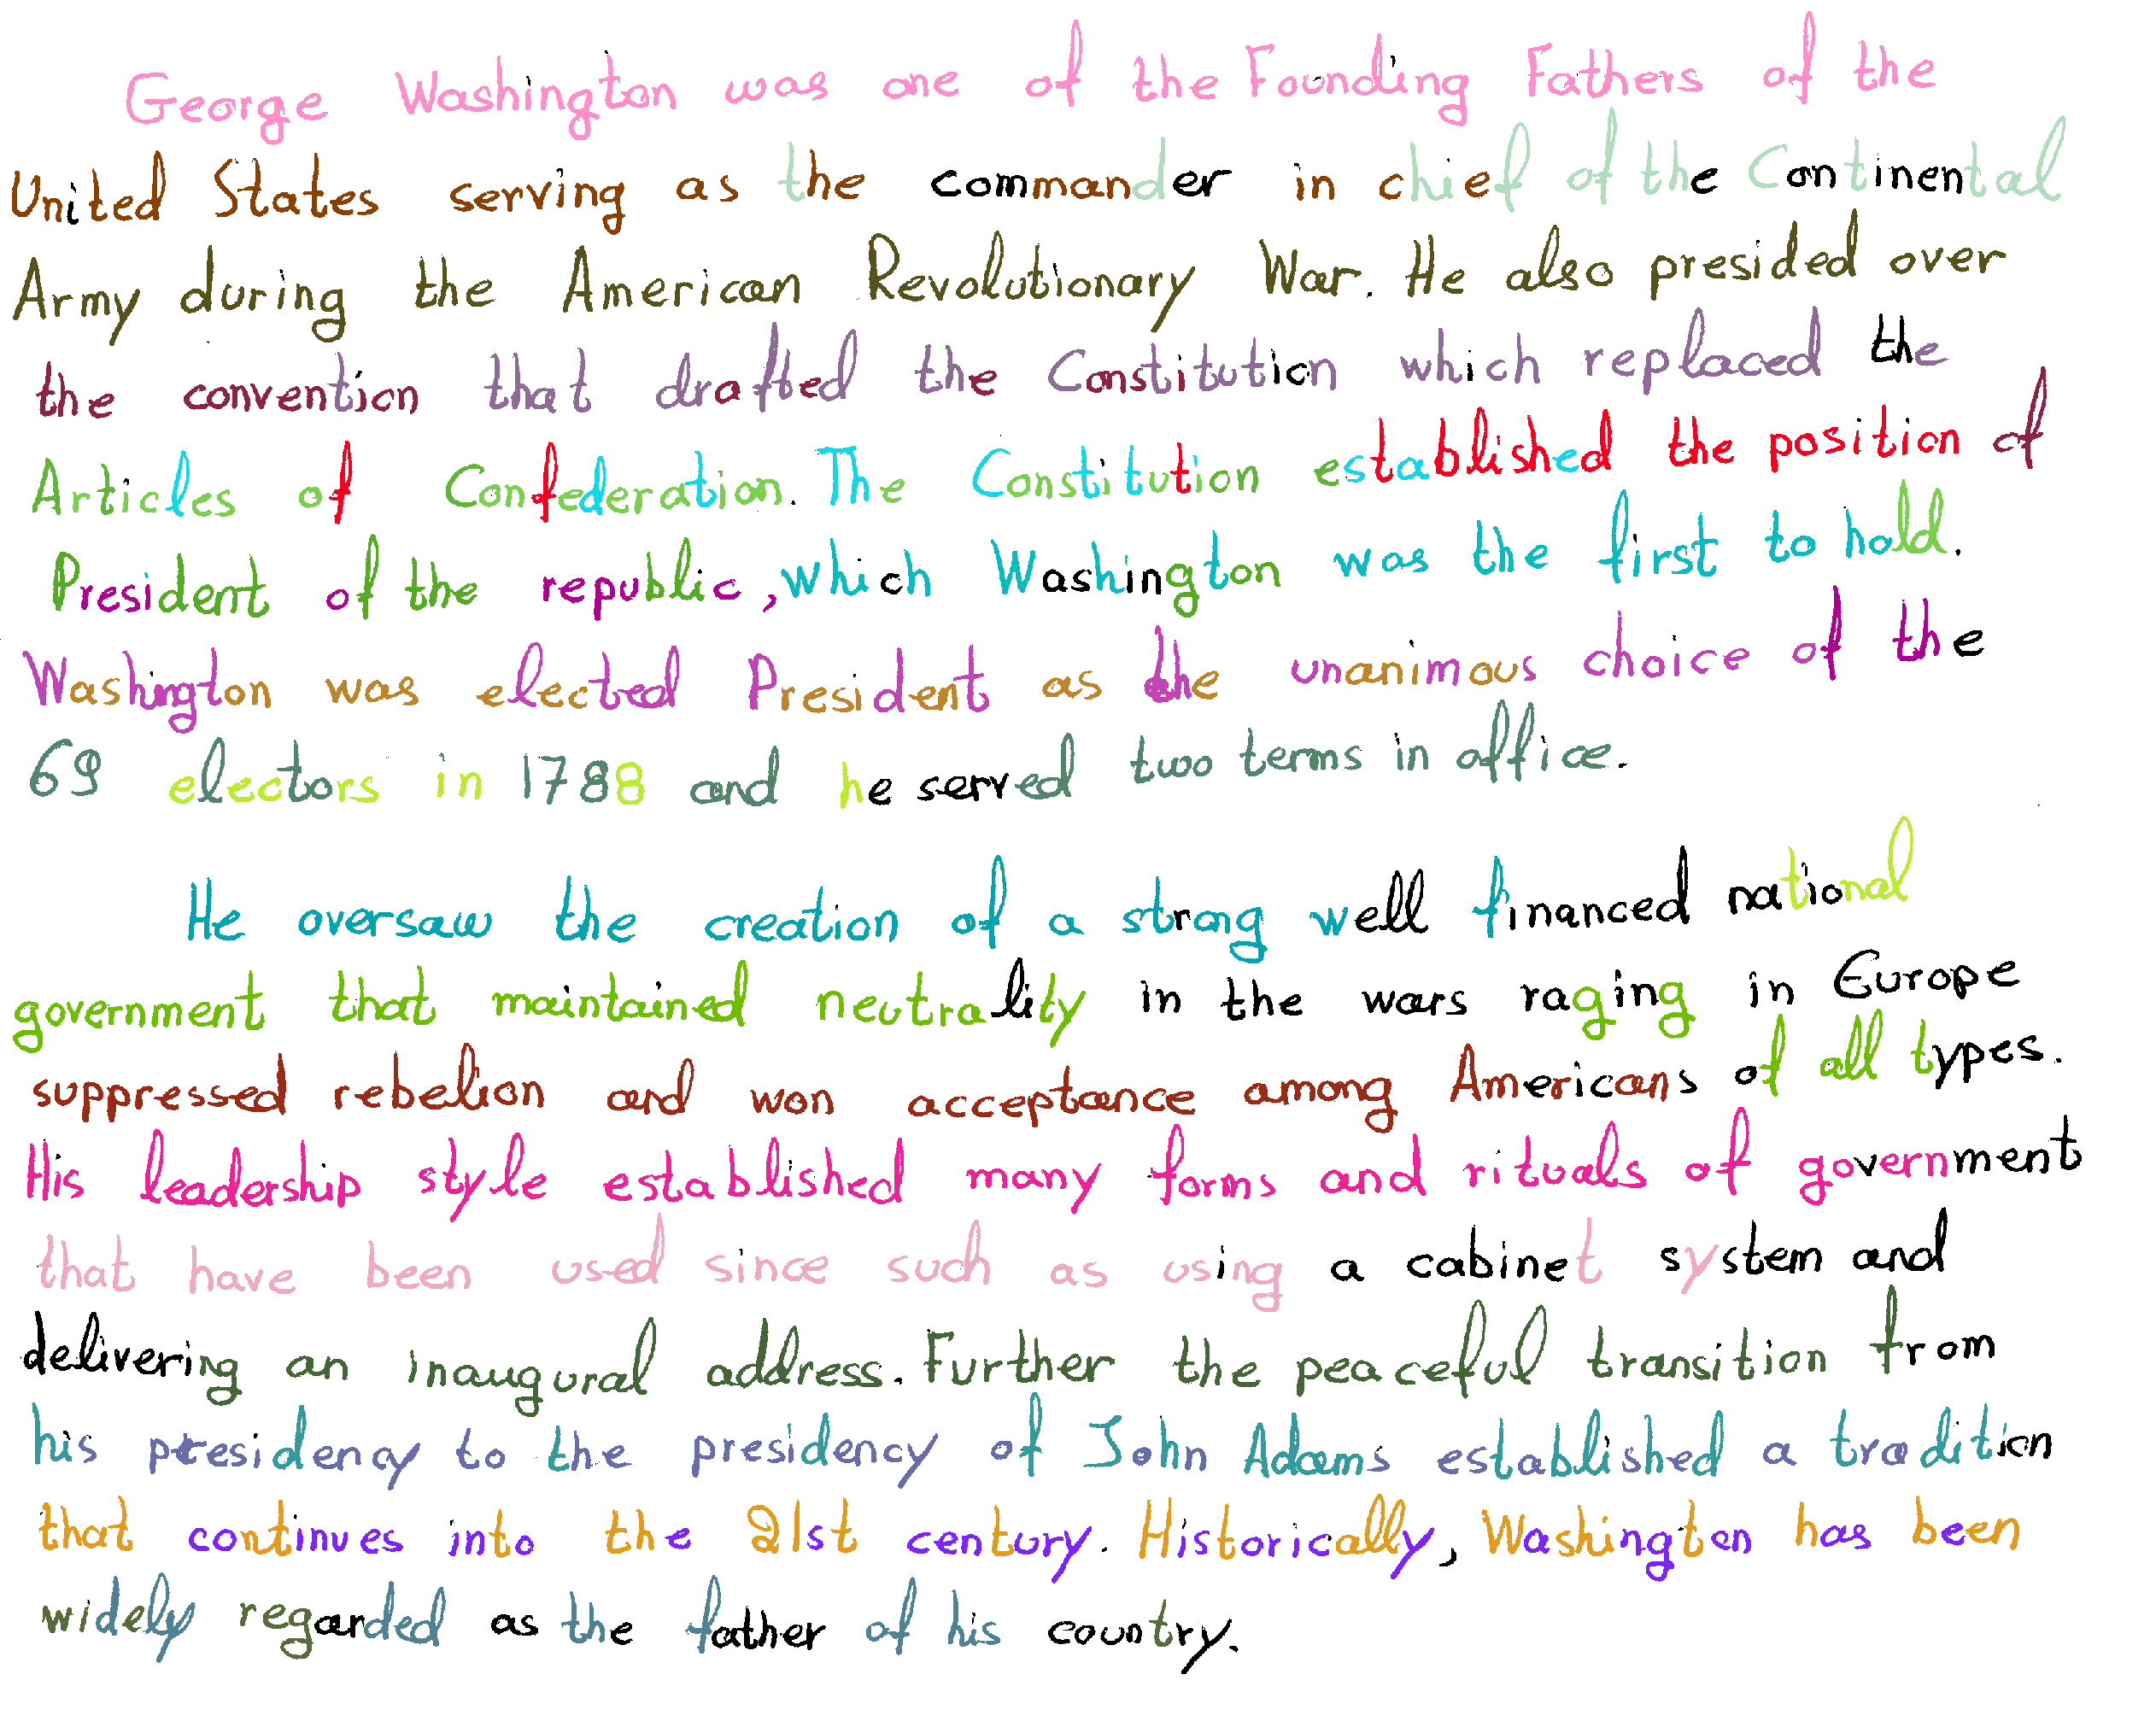 George Washington was one of the Founding Fathers of the
United States serving as the commander in chief of the Continental
Army during the American Revolutionary War. He also presided over
the convention that drafted the Constitution which replaced the
Articles of Confederation. The Constitution established the position of
President of the republic, which Washington was the first to hold.
Washington was elected President as the unanimous choice of the
69 electors in 1788 and he served two terms in office.
He oversaw the creation of a strong well financed national
government that maintained neutrality in the wars raging in Europe
suppressed rebelion and won acceptance among Americans of all types.
His leadership style established many forms and rituals of government
that have been used since such as using a cabinet system and
delivering an inaugural address. Further the peaceful transition from
his presidency to the presidency of John Adams established a tradition
that continues into the 21st century. Historically, Washington has been
widely regarded as the father of his country.